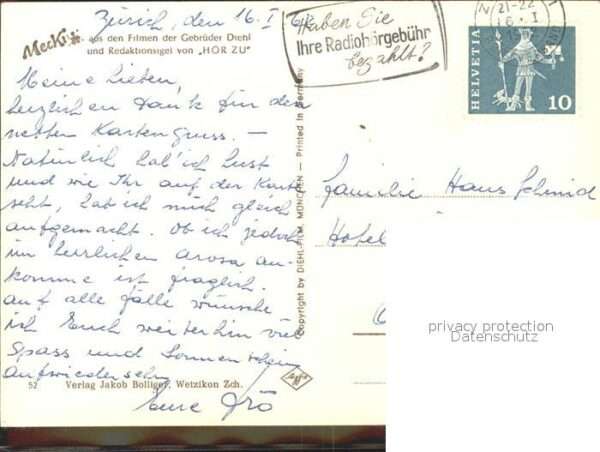 Zürich, den 16. I
Mecki
aus den Filmen der Gebrüder Diehl
und Redaktionsigel von „HÖR ZU"
Meine Lieben,
herzlichen Dank für den
netten Kartengruss. —
Natürlich hab' ich Lust
und wie Ihr auf der Karte
seht, hab ich mich gleich
aufgemacht. Ob ich jedoch
im herrlichen Arosa an-
komme ist fraglich.
Auf alle fälle wünsche
ich Euch weiterhin viel
Spass und Sonnenschein
aufwiedersehn
Eure
52 Verlag Jakob Bolliger, Wetzikon Zch.
Copyright by DIEHL-FILM, MÜNCHEN — Printed in Germany
Agfa
Haben Sie
Ihre Radiohörgebühr
bezahlt?
21-22
HELVETIA
10
Familie Hans Schmid
Hotel
privacy protection
Datenschutz